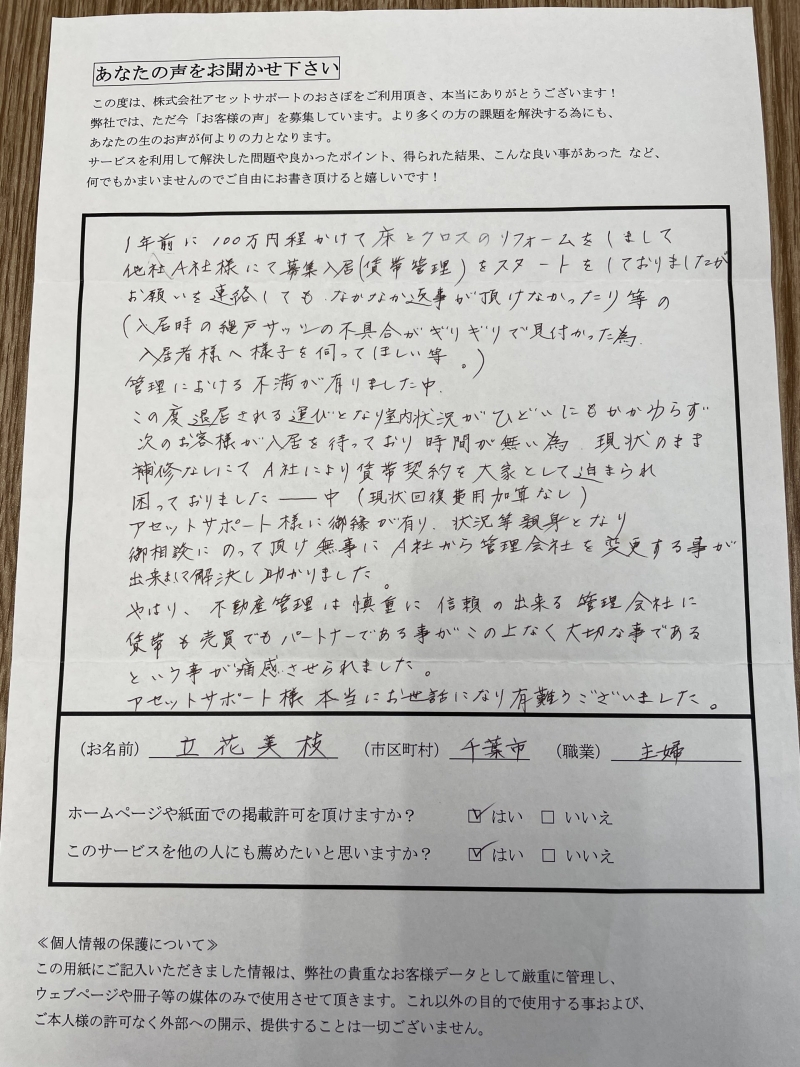 あなたの声をお聞かせ下さい
この度は、株式会社アセットサポートのおさぽをご利用頂き、本当にありがとうございます！
弊社では、ただ今「お客様の声」を募集しています。より多くの方の課題を解決する為にも、
あなたの生のお声が何よりの力となります。
サービスを利用して解決した問題や良かったポイント、得られた結果、こんな良い事があった など、
何でもかまいませんのでご自由にお書き頂けると嬉しいです！
1年前に100万円程かけて床とクロスのリフォームをしまして
他社A社様にて募集入居(賃帯管理)をスタートをしておりましたが
お願いを連絡しても、なかなか返事が頂けなかったり等の
(入居時の網戸サッシの不具合がギリギリで見付かった為、
入居者様へ様子を伺ってほしい等。)
管理における不満が有りました中、
この度退居される運びとなり室内状況がひどいにもかかわらず
次のお客様が入居を待っており時間が無い為、現状のまま
補修なしにてA社により賃帯契約を大家として迫まられ
困っておりました――中(現状回復費用加算なし)
アセットサポート様に御縁が有り、状況等親身となり
御相談にのって頂け無事にA社から管理会社を変更する事が
出来まして解決し助かりました。
やはり、不動産管理は慎重に信頼の出来る管理会社に
賃帯も売買でもパートナーである事がこの上なく大切な事である
という事が痛感させられました。
アセットサポート様本当にお世話になり有難うございました。
(お名前) 立花美枝 (市区町村) 千葉市 (職業) 主婦
ホームページや紙面での掲載許可を頂けますか？ ☑はい □いいえ
このサービスを他の人にも薦めたいと思いますか？ ☑はい □いいえ
≪個人情報の保護について≫
この用紙にご記入いただきました情報は、弊社の貴重なお客様データとして厳重に管理し、
ウェブページや冊子等の媒体のみで使用させて頂きます。これ以外の目的で使用する事および、
ご本人様の許可なく外部への開示、提供することは一切ございません。